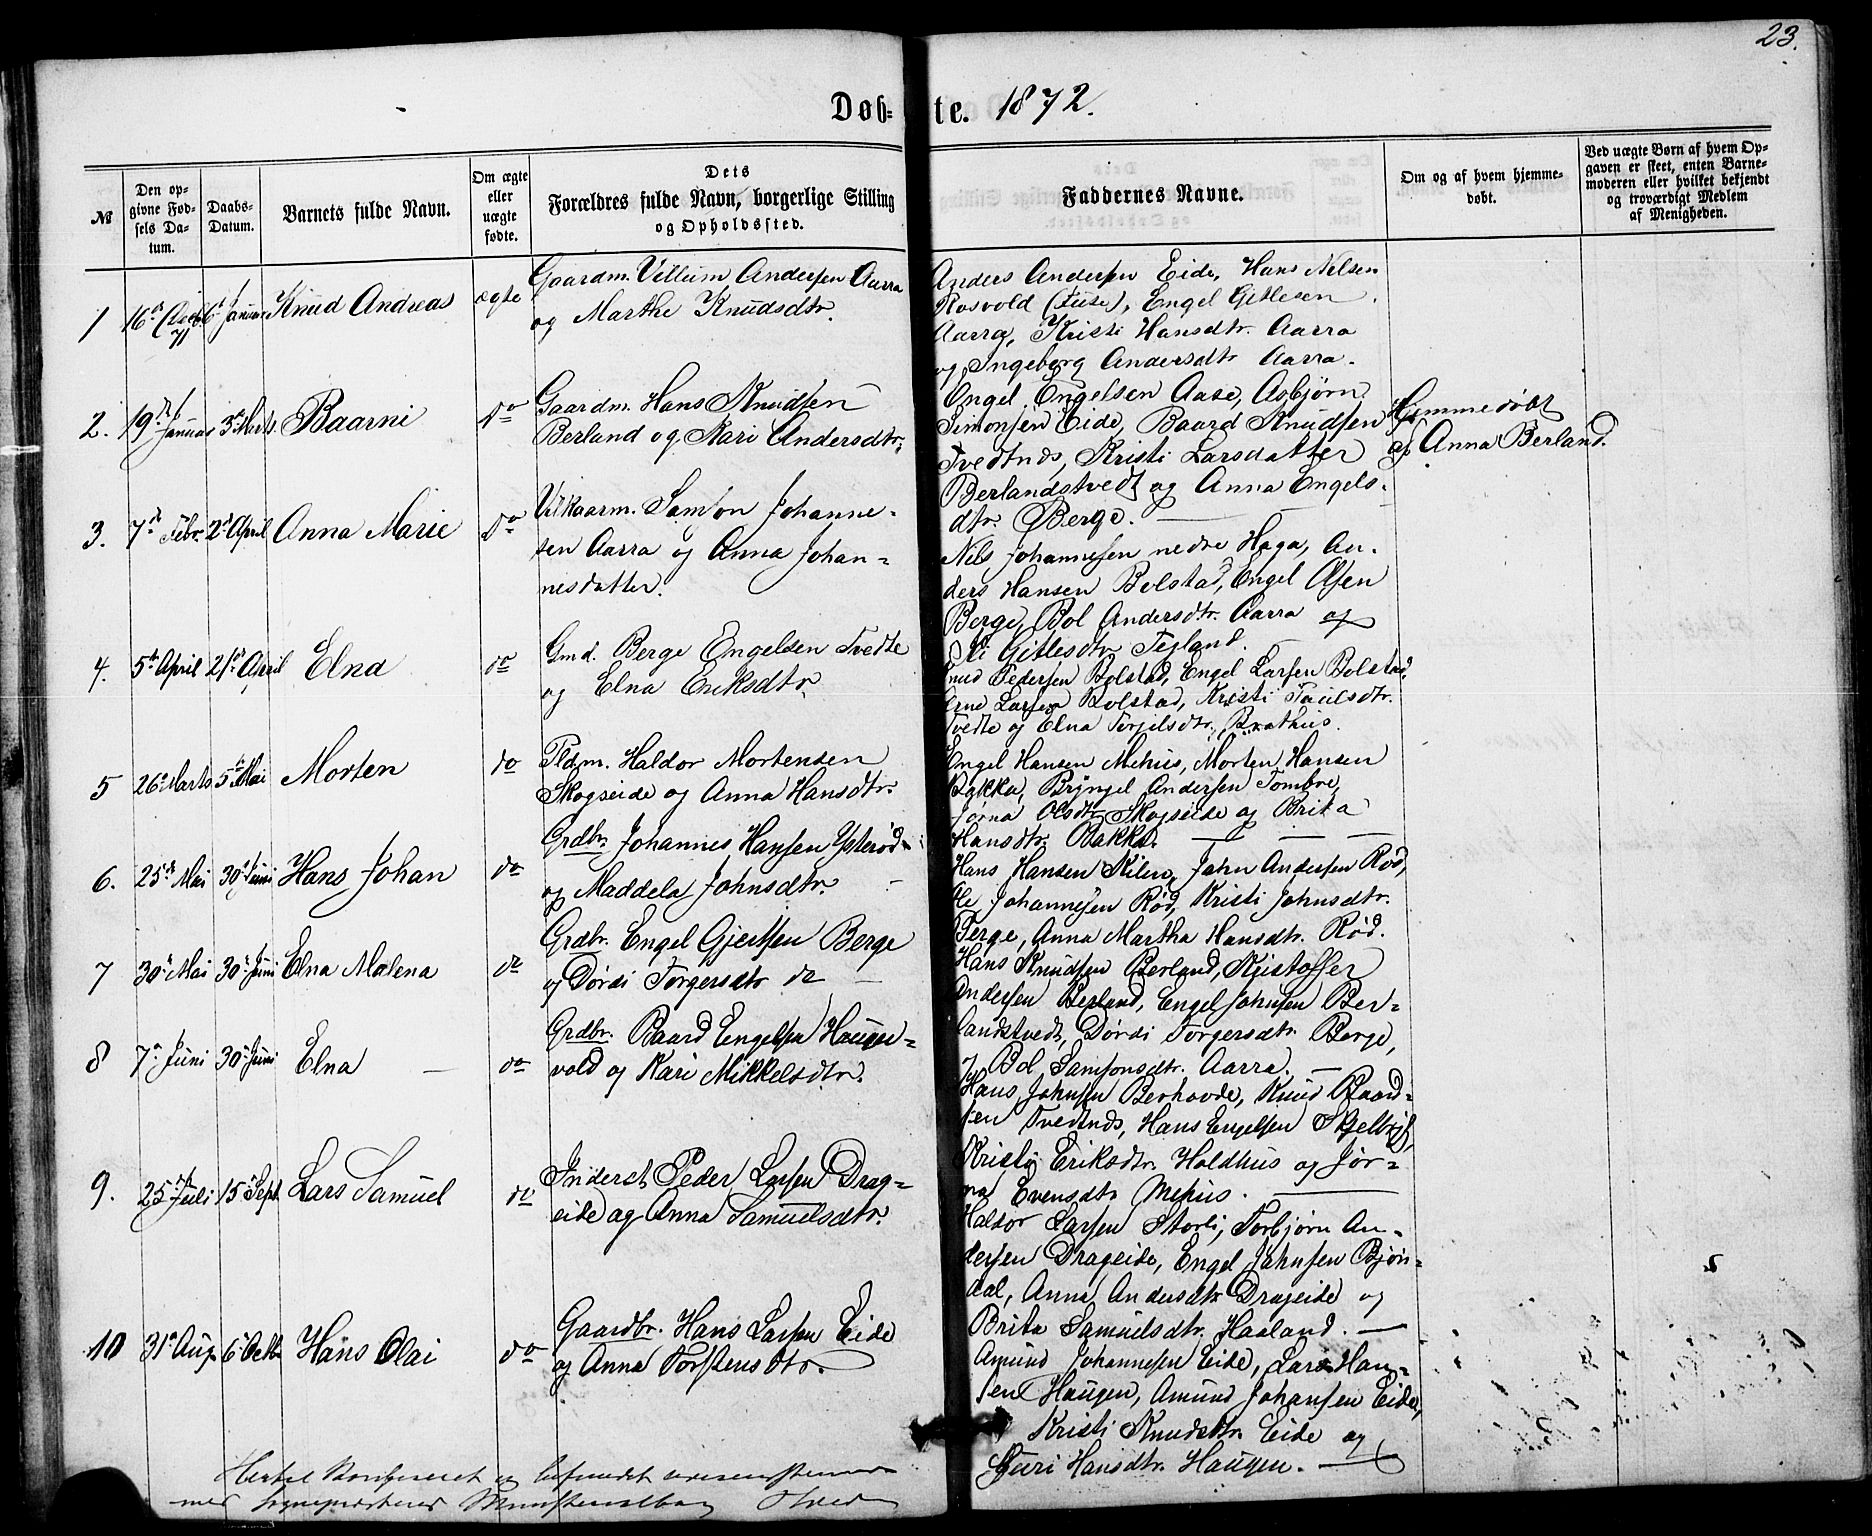 23.
Døb-
te. 1872.
№
Den op-
givne Fød-
sels Da-
tum.
Daabs-
Datum.
Barnets fulde Navn.
Om ægte
eller
uægte
fødte.
Dets
Forældres fulde Navn, borgerlige Stilling
og Opholdssted.
Faddernes Navne.
Om og af hvem hjemme-
døbt.
Ved uægte Børn af hvem Op-
gaven er skeet, enten Barne-
moderen eller hvilket bekjendt
og troværdigt Medlem
af Menigheden.
1
16de
71
6te Januar
Knud Andreas
ægte
Gaardm. Villum Andersen Aarra
og Marthe Knudsdtr.
Anders Andersen Eide, Hans Nelsen
Rosvold (Fuse), Engel Gitlesen
Aarra, Kristi Hansdtr. Aarra
og Ingeborg Andersdtr Aarra.
2.
19de Januar
3de Marts.
Baarni
Do
Gaardm. Hans Knudsen
Berland og Kari Andersdtr.
Engel Engelsen Aase, Asbjørn
Simonsen Eide, Baard Knudsen
Tvedtnæs, Kristi Larsdatter
Berlandstvedt og Anna Engels-
dtr. Berge.
Hjemmedøbt
af Anna Berland.
3.
7de Febr.
2den April
Anna Marie
Do
Vilkaarm. Samson Johanne-
sen Aarra og Anna Johan-
nesdatter.
Nils Johannesen nedre Haga, An-
ders Hansen Bolstad, Engel Olsen
Berge, Bol Andersdtr. Aarra og
Gitlesdtr Tegland.
4.
5te April
21de April
Elna
do
Gmd. Berge Engelsen Tvedte
og Elna Eriksdtr.
Knud Pedersen Bolstad, Engel Larsen Bolstad,
Arne Larsen Bolstad, Kristi Paulsdtr.
Tvedte og Elna Terjelsdtr. Brathus.
5
26de Marts
5te Mai
Morten
do
Pldm. Haldor Mortensen
Skogseide og Anna Hansdtr.
Engel Hansen Mehus, Morten Hansen
Bakka, Bryngel Andersen Tombre,
Jørna Olsdtr Skogseide og Brita
Hansdtr. Bakka.
6.
25de Mai
30te Juni
Hans Johan
do
Grdbr. Johannes Hansen Ysterød
og Maddela Johnsdtr.
Hans Hansen Kilen, John Andersen Rød,
Ole Johannesen Rød, Kristi Johnsdtr.
Berge, Anna Martha Hansdtr. Rød.
7
30te Mai
30te Juni
Elna Malena
do
Grdbr. Engel Gjertsen Berge
og Dørdi Torgersdtr do
Hans Knudsen Berland, Kristoffer
Andersen Berland, Engel Johnsen Ber-
landstvedt, Dørdi Torgersdtr. Berge,
og Bol Samsonsdtr. Aarra.
8
7de Juni
30te Juni
Elna
do
Grdbr. Baard Engelsen Hauge-
vold og Kari Mikkelsdtr.
Hans Johnsen Berhovde, Knud Baard-
sen Tvedtnæs, Hans Engelsen Skjelbreid,
Kristi Eriksdtr. Holdhus og Jør-
na Evensdtr Mehus.
9.
25de Juli
15de Sept.
Lars Samuel
do
Inderst Peder Larsen Drag-
eide og Anna Samuelsdtr.
Haldor Larsen Storli, Torbjørn An-
dersen Drageide, Engel Johnsen Bjørn-
dal, Anna Andersdtr Drageide og
Brita Samuelsdtr. Haaland.
10
31te Aug.
6te Octb
Hans Olai
do
Gaardbr. Hans Larsen Eide
og Anna Torstensdtr.
Amund Johannesen Eide, Lars Han-
sen Haugen, Amund Johansen Eide,
Kristi Knudsdtr Eide og
Guri Hansdtr. Haugen.
befundet
med